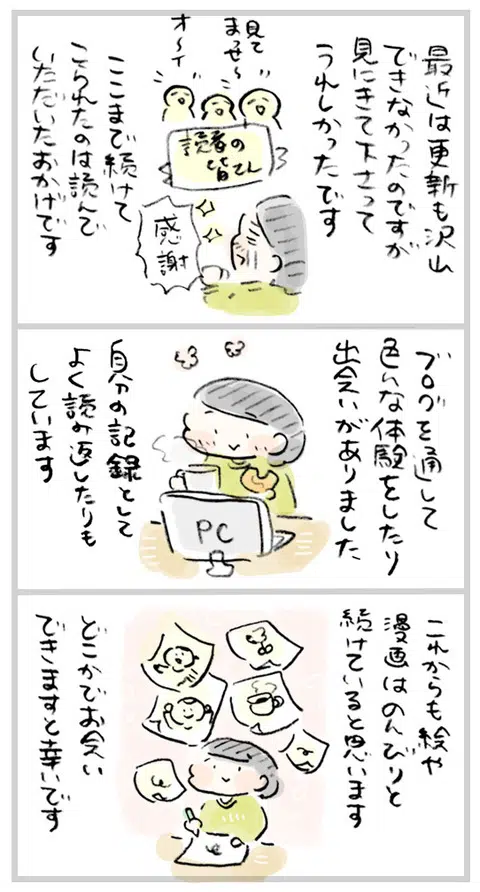 最近は更新も沢山
できなかったのですが
見にきて下さって
うれしかったです
見て
まっせ〜
オ〜イ
読者の
皆さん
感謝
ここまで続けて
こられたのは読んで
いただいたおかげです
ブログを通して
色んな体験をしたり
出会いがありました
PC
自分の記録として
よく読み返したりも
しています
これからも絵や
漫画はのんびりと
続けていると思います
どこかでお会い
できますと幸いです